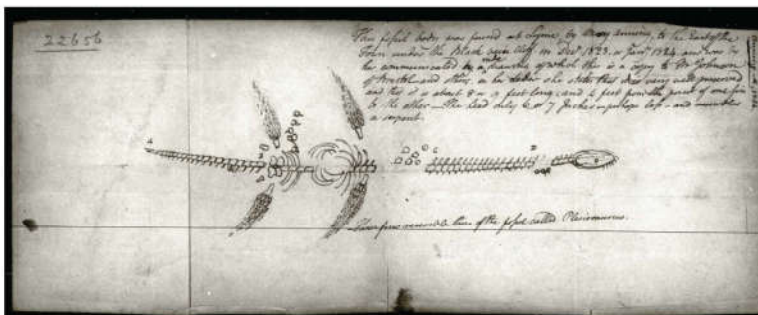 22656
This fossil body was found at Lyme, by Mary Anning, to the East of the
Town under the Black Cliff in Decr 1823, or Jany 1824, and was to
be communicated by a drawing of which this is a copy to Mr Johnson
of Bristol and others, in her letter she states this was very well preserved
and that it is about 8 or 9 feet long, and 4 feet from the point of one fin
to the other — The head only 6 or 7 Inches perhaps less — and
a serpent.
These fins resemble those of the fossil called Plesiosaurus.